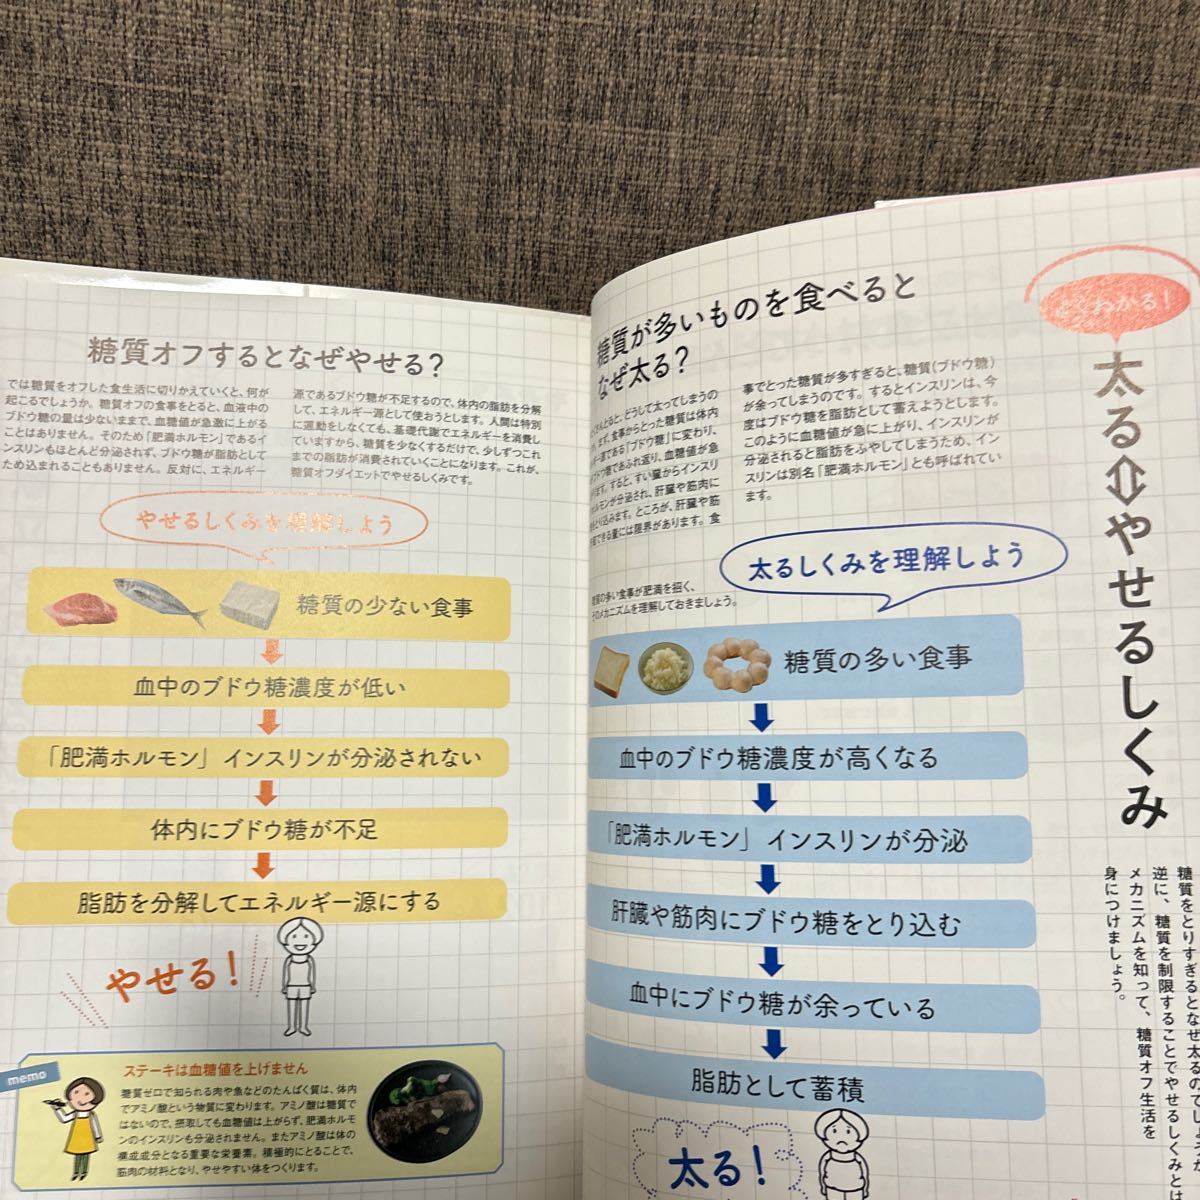 よくわかる！
太る⇔やせるしくみ
糖質をとりすぎるとなぜ太るのでしょうか
逆に、糖質を制限することでやせるしくみとは
メカニズムを知って、糖質オフ生活を
身につけましょう。
糖質が多いものを食べると
なぜ太る？
さんとると、どうして太ってしまうの
まず、食事からとった糖質は体内
ギー源である「ブドウ糖」に変わり、
ブドウ糖であふれ返り、血糖値が急
ります。すると、すい臓からインスリ
ホルモンが分泌され、肝臓や筋肉に
とり込みます。ところが、肝臓や筋
できる量には限界があります。食
事でとった糖質が多すぎると、糖質（ブドウ糖）
が余ってしまうのです。するとインスリンは、今
度はブドウ糖を脂肪として蓄えようとします。
このように血糖値が急に上がり、インスリンが
分泌されると脂肪をふやしてしまうため、イン
スリンは別名「肥満ホルモン」とも呼ばれてい
ます。
太るしくみを理解しよう
糖質の多い食事が肥満を招く、
そのメカニズムを理解しておきましょう。
糖質の多い食事
血中のブドウ糖濃度が高くなる
「肥満ホルモン」インスリンが分泌
肝臓や筋肉にブドウ糖をとり込む
血中にブドウ糖が余っている
脂肪として蓄積
太る！
糖質オフするとなぜやせる？
では糖質をオフした食生活に切りかえていくと、何が
起こるでしょうか。糖質オフの食事をとると、血液中の
ブドウ糖の量は少ないままで、血糖値が急激に上がる
ことはありません。そのため「肥満ホルモン」であるイ
ンスリンもほとんど分泌されず、ブドウ糖が脂肪として
ため込まれることもありません。反対に、エネルギー
源であるブドウ糖が不足するので、体内の脂肪を分解
して、エネルギー源として使おうとします。人間は特別
に運動をしなくても、基礎代謝でエネルギーを消費し
ていますから、糖質を少なくするだけで、少しずつこれ
までの脂肪が消費されていくことになります。これが、
糖質オフダイエットでやせるしくみです。
やせるしくみを理解しよう
糖質の少ない食事
血中のブドウ糖濃度が低い
「肥満ホルモン」インスリンが分泌されない
体内にブドウ糖が不足
脂肪を分解してエネルギー源にする
やせる！
memo
ステーキは血糖値を上げません
糖質ゼロで知られる肉や魚などのたんぱく質は、体内
でアミノ酸という物質に変わります。アミノ酸は糖質で
はないので、摂取しても血糖値は上がらず、肥満ホルモ
ンのインスリンも分泌されません。またアミノ酸は体の
構成成分となる重要な栄養素。積極的にとることで、
筋肉の材料となり、やせやすい体をつくります。